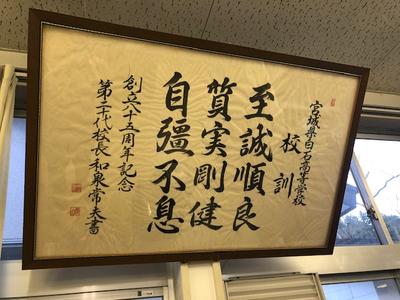 宮城県白石高等学校
校訓
至誠順良
質実剛健
自彊不息
創立八十五周年記念
第二十代校長和泉常夫書